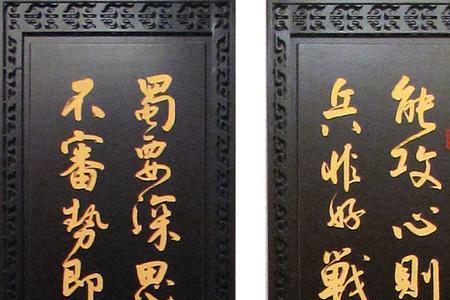 能攻心則
兵非好戰
蜀要深思
不審势即